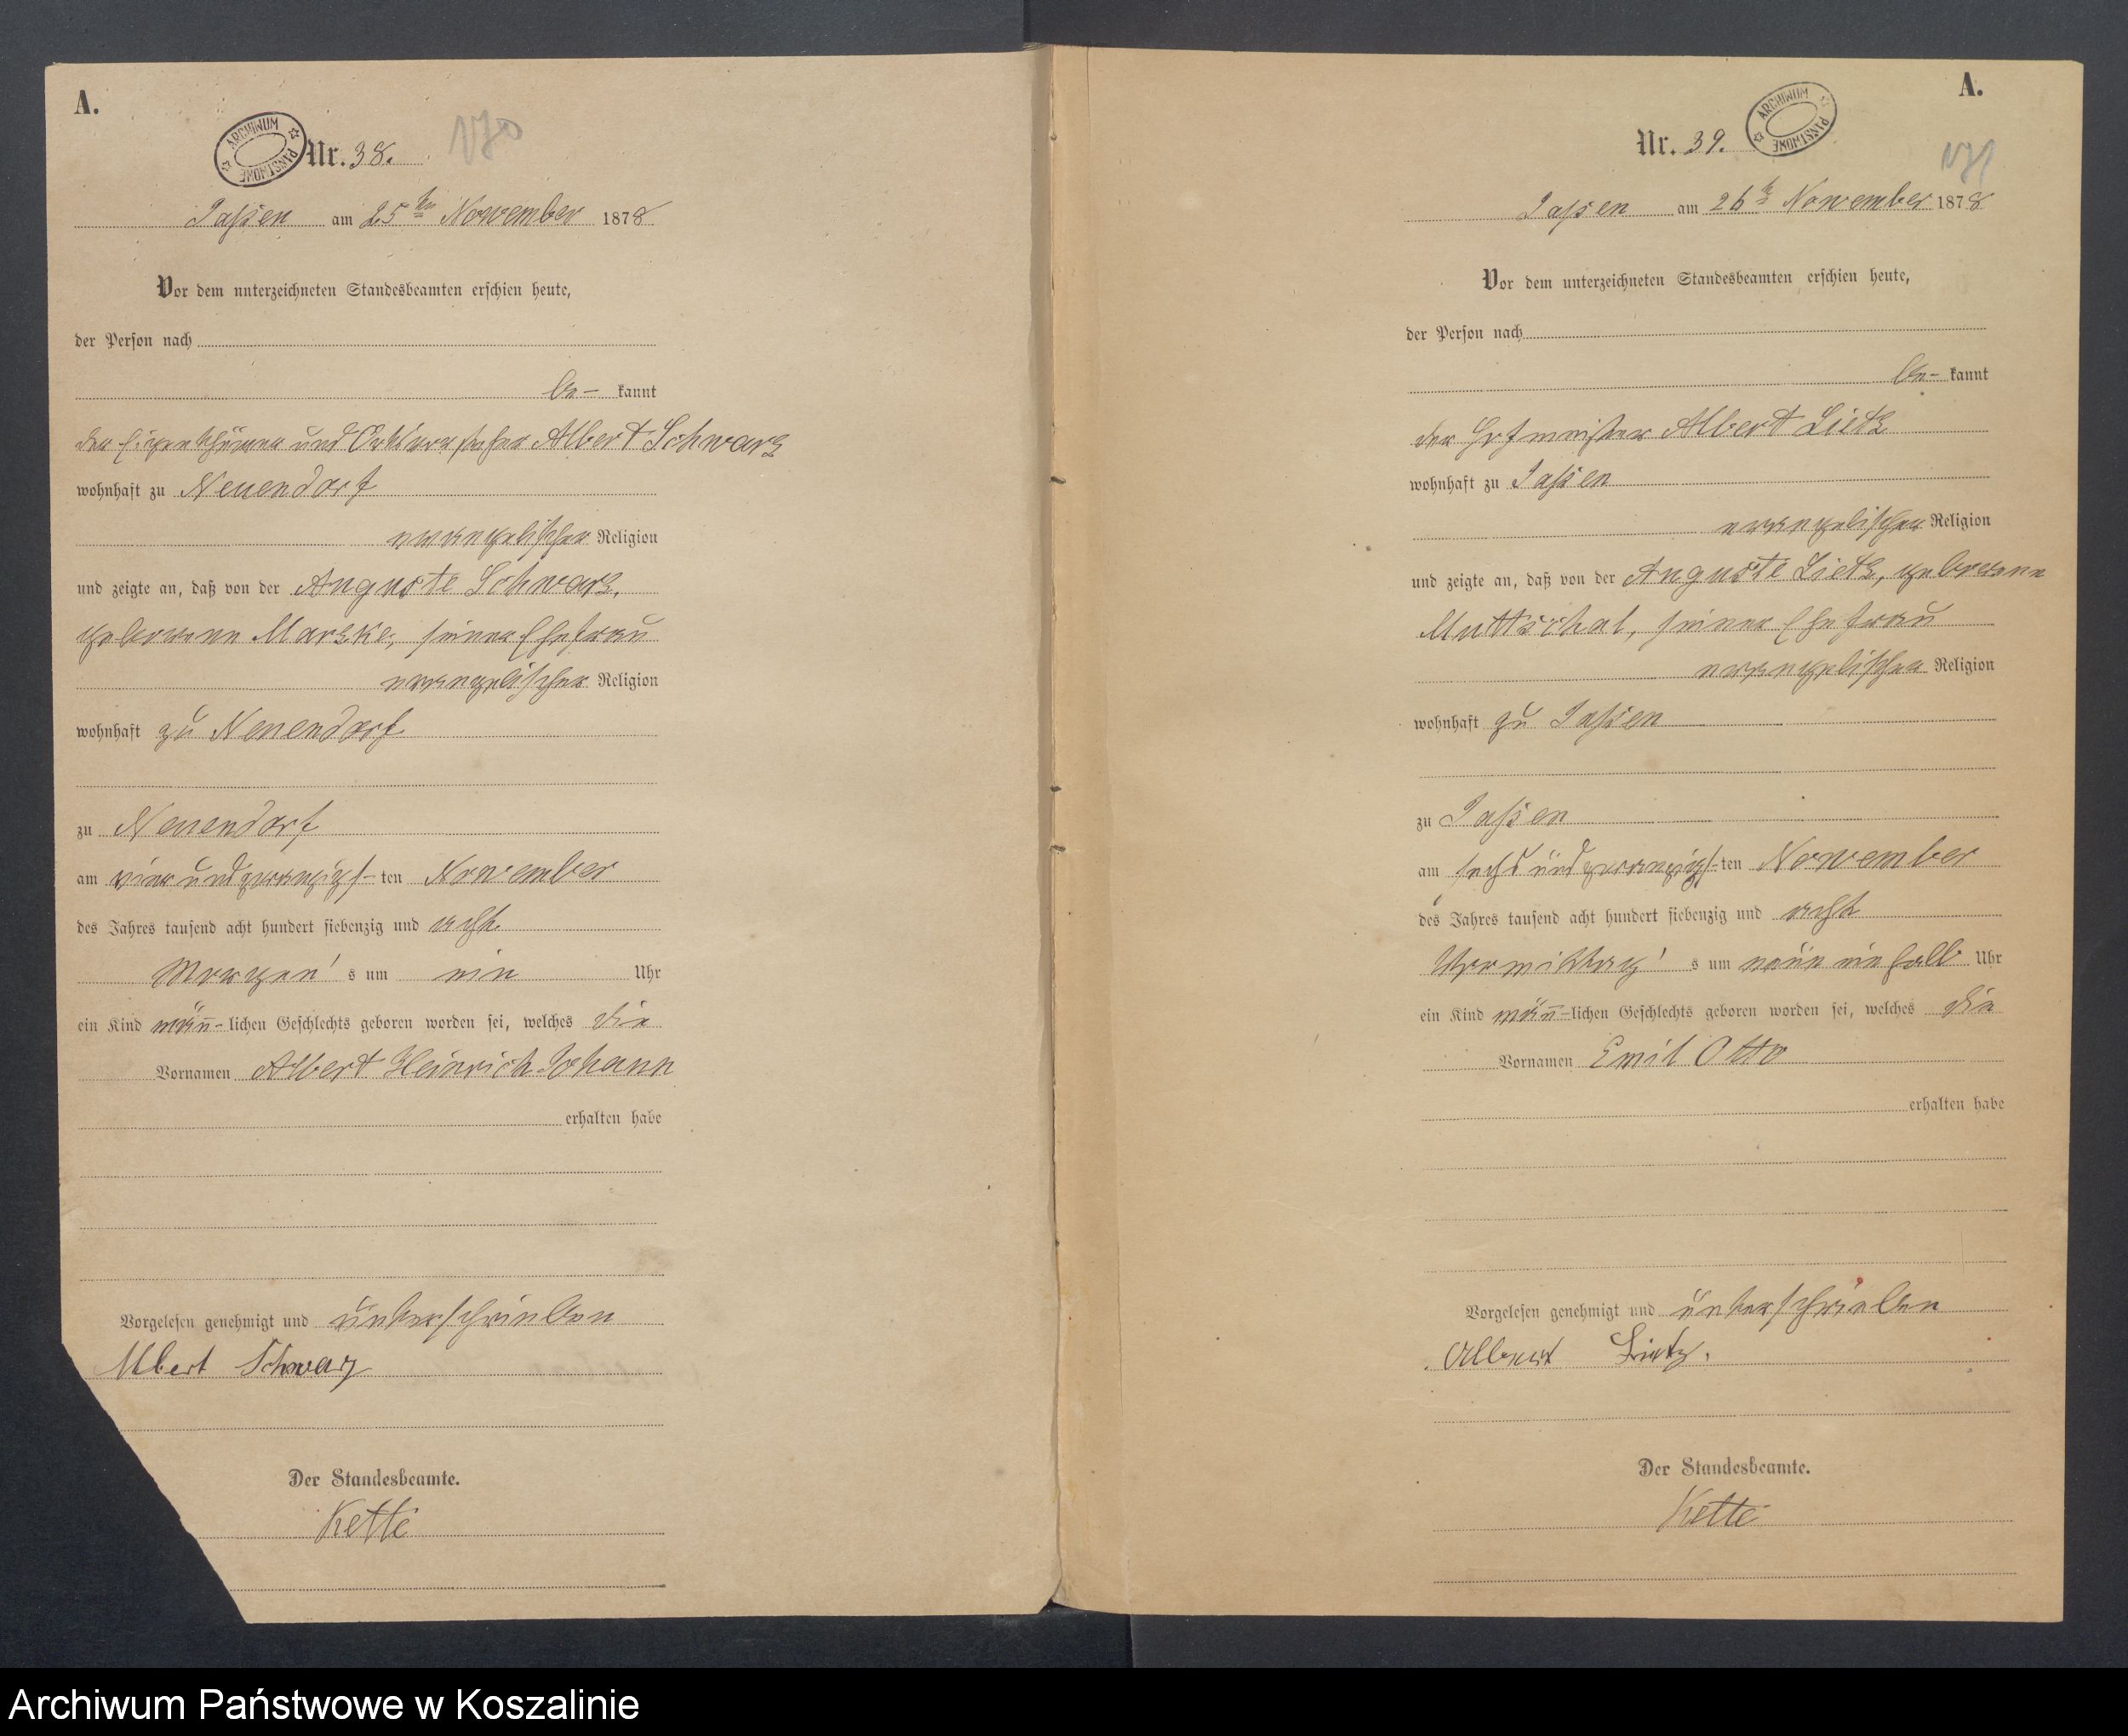 A.
ARCHIWUM PAŃSTWOWE
Nr. 38.
170
Jassen am 25ten November 1878
Vor dem unterzeichneten Standesbeamten erschien heute,
der Person nach
be- kannt
der Eigenthümer und Ortsvorsteher Albert Schwarz
wohnhaft zu Neuendorf
evangelischer Religion
und zeigte an, daß von der Auguste Schwarz,
geborenen Marzke, seiner Ehefrau
evangelischer Religion
wohnhaft zu Neuendorf
zu Neuendorf
am vier und zwanzigs-ten November
des Jahres tausend acht hundert siebenzig und acht
Morgen's um ein Uhr
ein Kind männ-lichen Geschlechts geboren worden sei, welches die
Vornamen Albert Heinrich Johann
erhalten habe
Vorgelesen genehmigt und unterschrieben
Albert Schwarz
Der Standesbeamte.
Kette
A.
ARCHIWUM PAŃSTWOWE
Nr. 39.
171
Jassen am 26te November 1878
Vor dem unterzeichneten Standesbeamten erschien heute,
der Person nach
be- kannt
der Hofmeister Albert Lietz
wohnhaft zu Jassen
evangelischer Religion
und zeigte an, daß von der Auguste Lietz, geborenen
Muttschal, seiner Ehefrau
evangelischer Religion
wohnhaft zu Jassen
zu Jassen
am sechs und zwanzigs-ten November
des Jahres tausend acht hundert siebenzig und acht
Vormittag's um neun einhalb Uhr
ein Kind männ-lichen Geschlechts geboren worden sei, welches die
Vornamen Emil Otto
erhalten habe
Vorgelesen genehmigt und unterschrieben
Albert Lietz.
Der Standesbeamte.
Kette
Archiwum Państwowe w Koszalinie